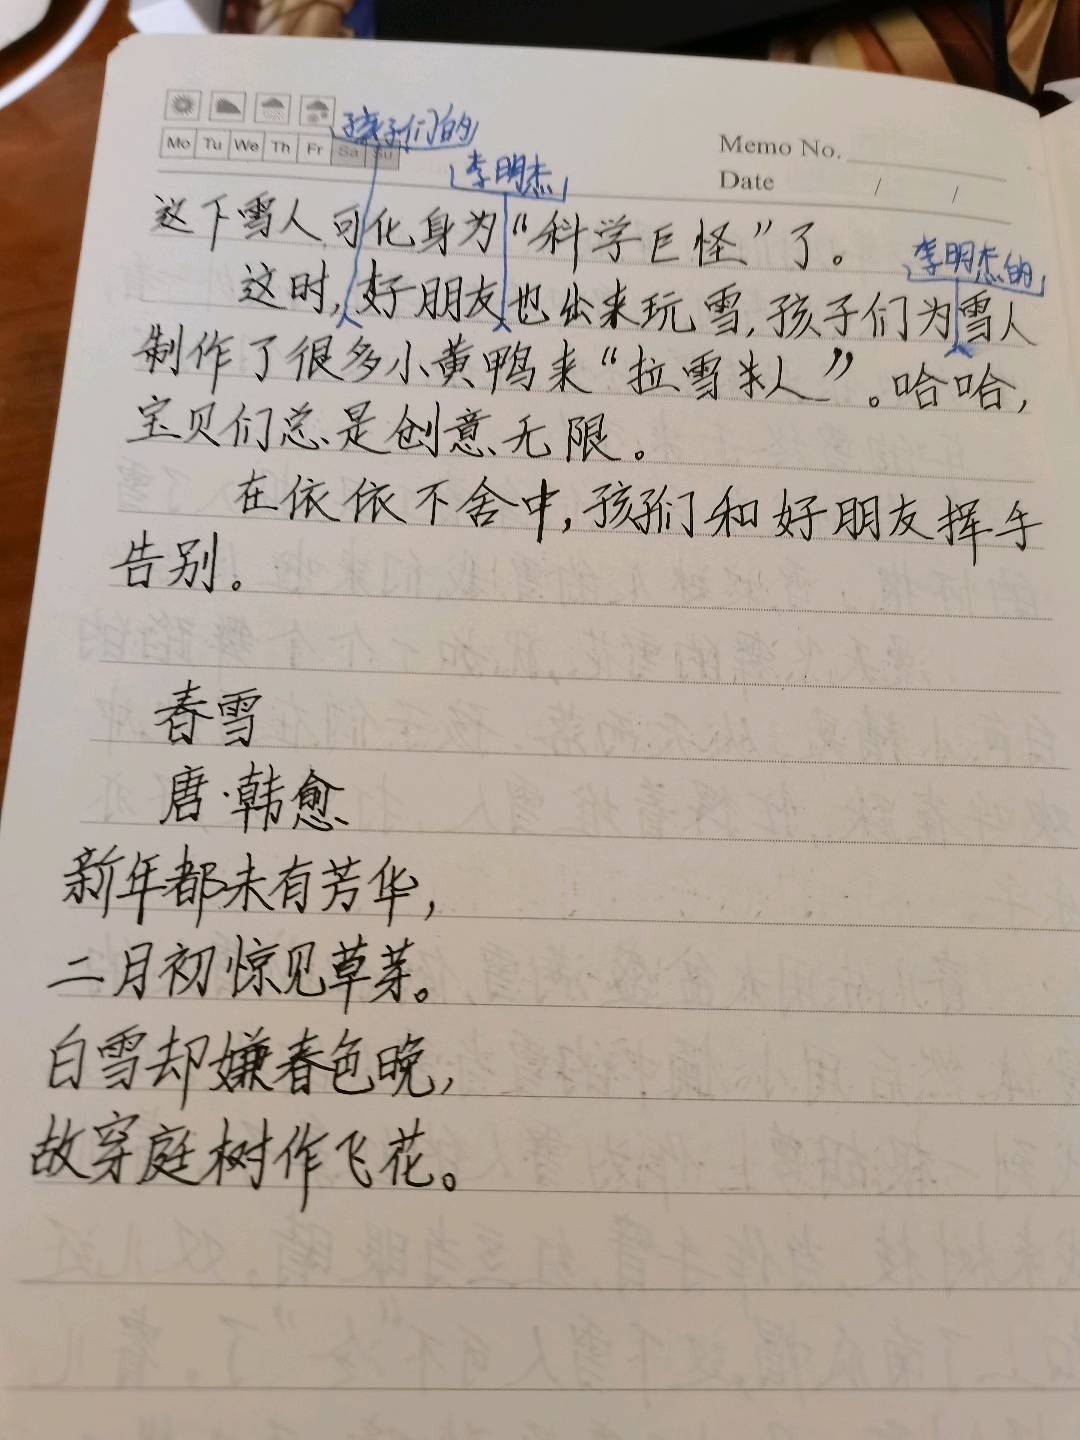 Mo Tu We Th Fr Sa Su
Memo No.
Date / /
孩子们的
李明杰
这下雪人可化身为“科学巨怪”了。
李明杰的
这时,好朋友也出来玩雪,孩子们为雪人
制作了很多小黄鸭来“拉雪人”。哈哈,
宝贝们总是创意无限。
在依依不舍中,孩子们和好朋友挥手
告别。
春雪
唐·韩愈
新年都未有芳华,
二月初惊见草芽。
白雪却嫌春色晚,
故穿庭树作飞花。